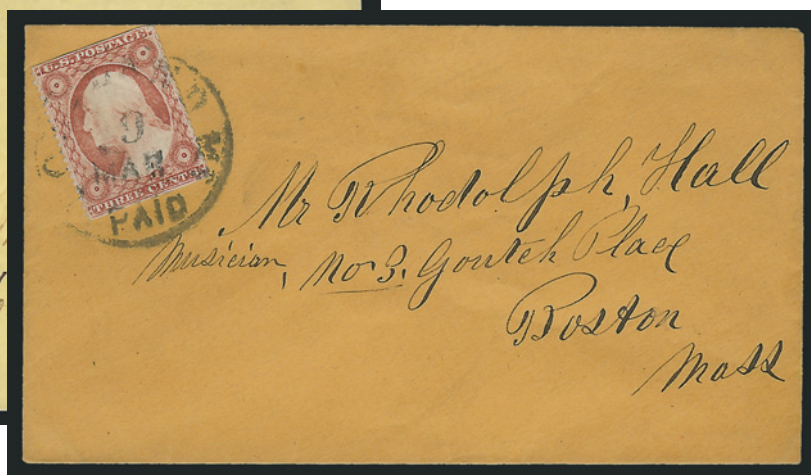 U.S. POSTAGE
9
MAR
THREE CENTS
PAID
Mr Rhodolph, Hall
Musician, No 3. Goutch Place
Boston
Mass